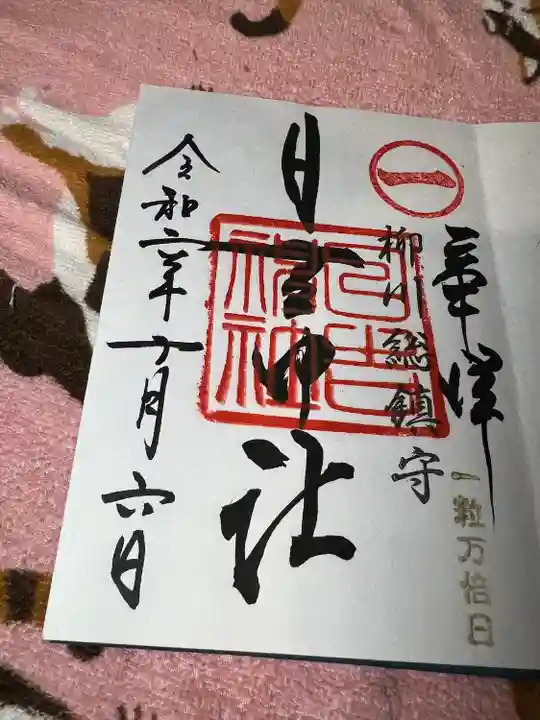 奉拝
一粒万倍日
一
柳川総鎮守
日吉神社
日吉神社
令和六年十月六日